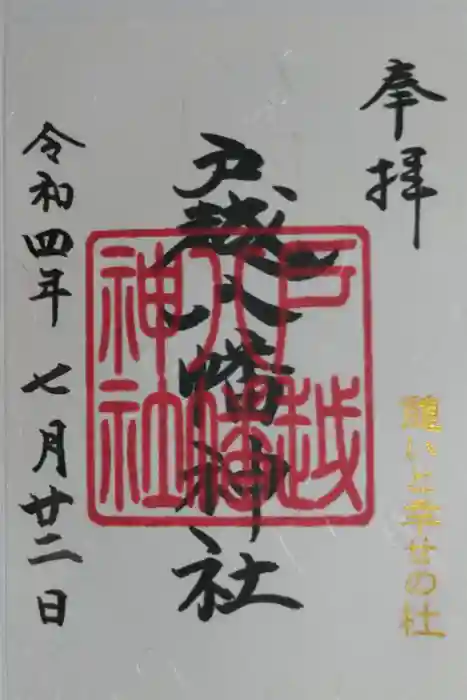 奉拝
癒いと幸せの杜
戸越八幡神社
戸越
八幡
神社
令和四年七月廿二日